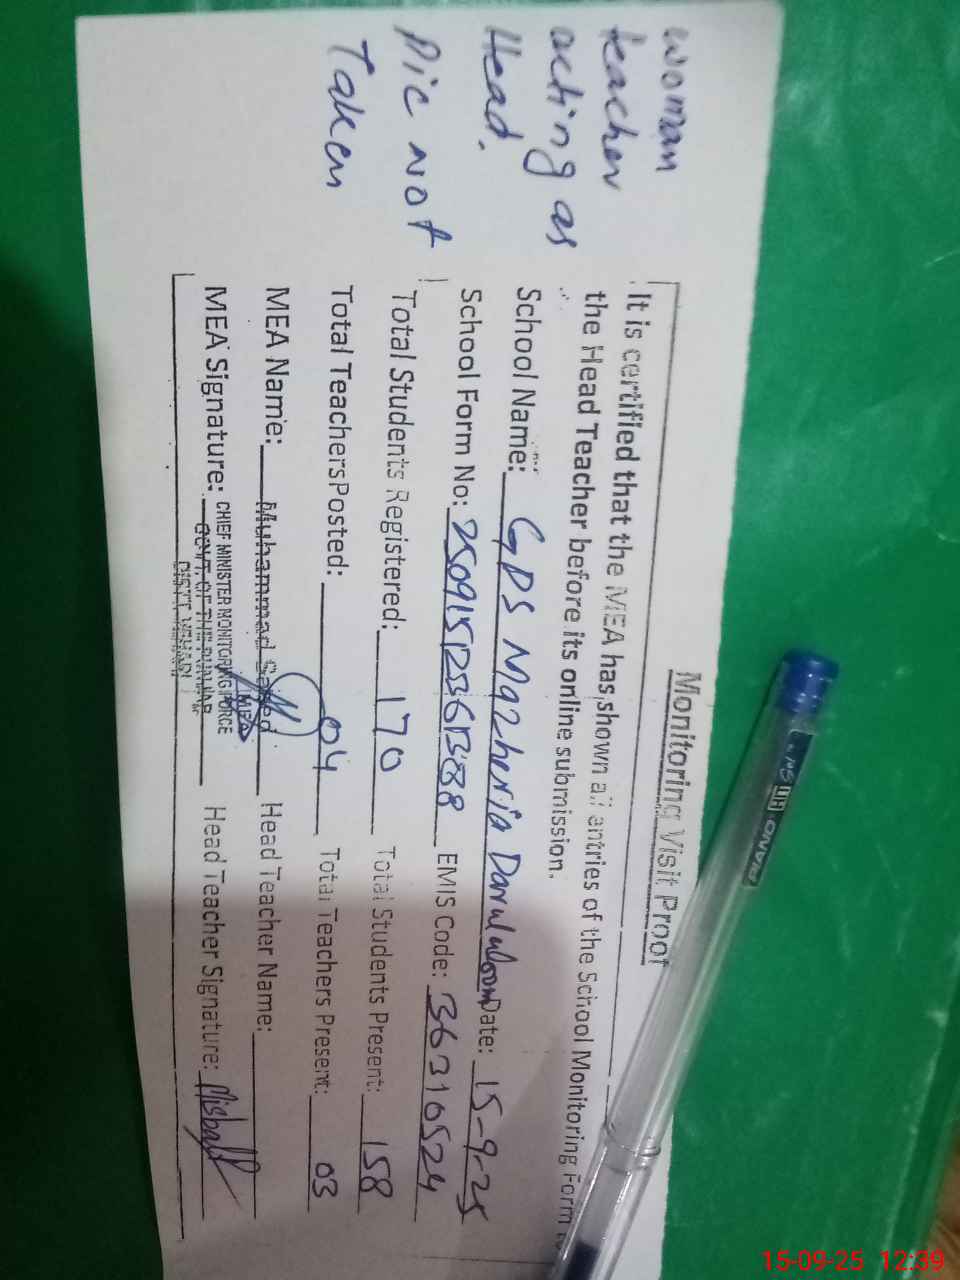 woman
teacher
acting as
Head.
Pic not
Taken
Monitoring Visit Proof
It is certified that the MEA has shown all entries of the School Monitoring Form to
the Head Teacher before its online submission.
School Name: GPS Mazheria Darululoom Date: 15-9-25
School Form No: EMIS Code: 36310524
Total Students Registered: 170 Total Students Present: 158
Total Teachers Posted: 04 Total Teachers Present: 03
MEA Name: Muhammad Saeed Head Teacher Name:
MEA Signature: Head Teacher Signature: Misbah
CHIEF MINISTER MONITORING FORCE
GOVT. OF THE PUNJAB
DISTT. VEHARI
MEA
PIANO
15-09-25 12:39